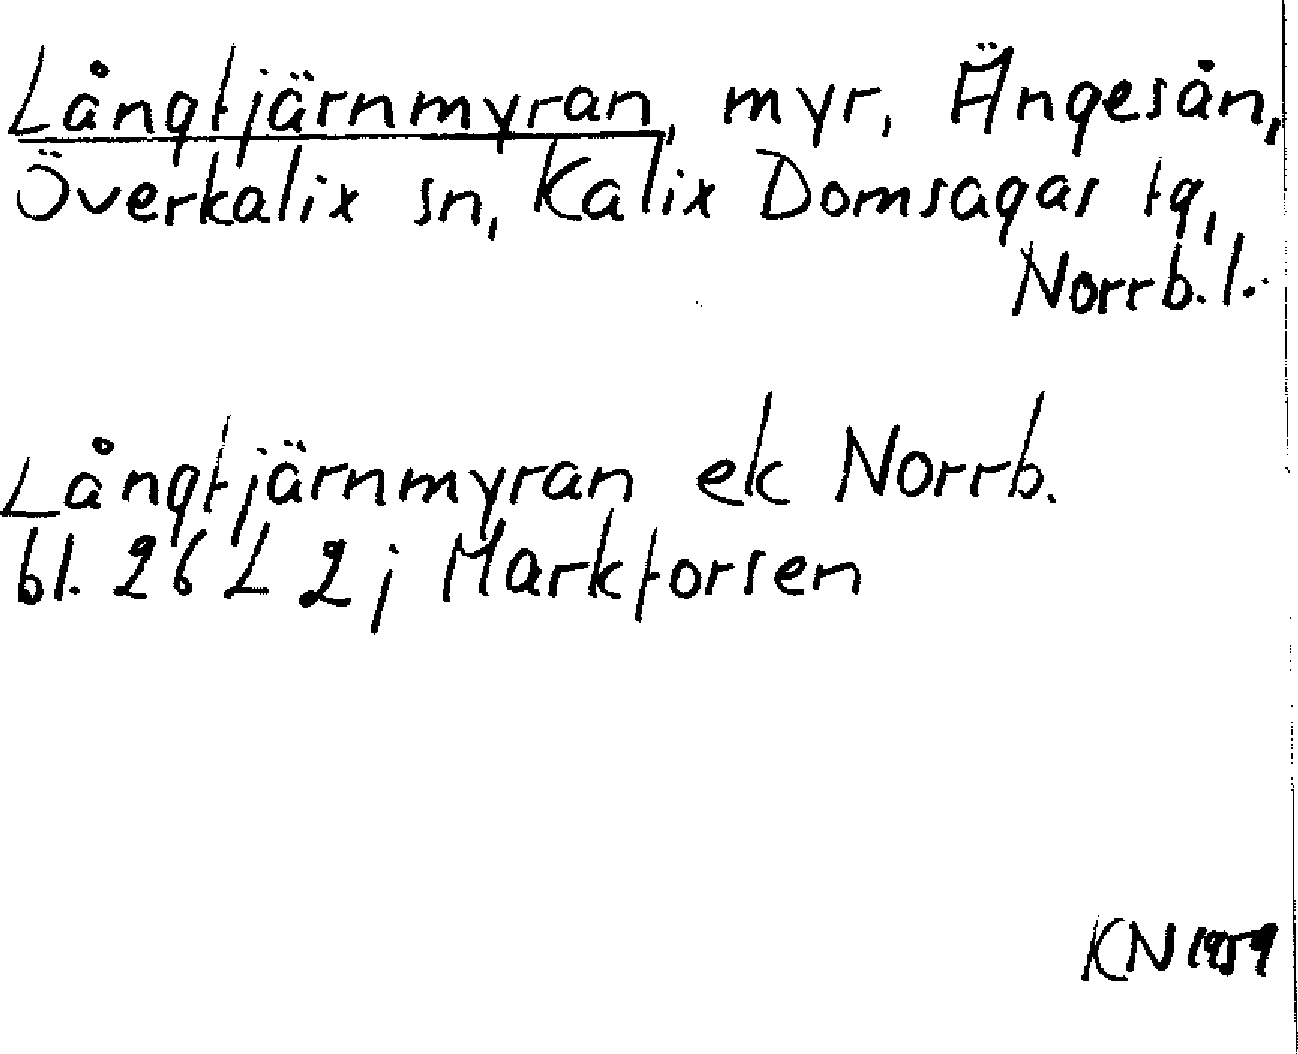 Långtjärnmyran, myr, Ängesån,
Överkalix sn, Kalix Domsagas tg,
Norrb. l.
Långtjärnmyran ek Norrb.
bl. 26 L 2 j Markforsen
KN 1959